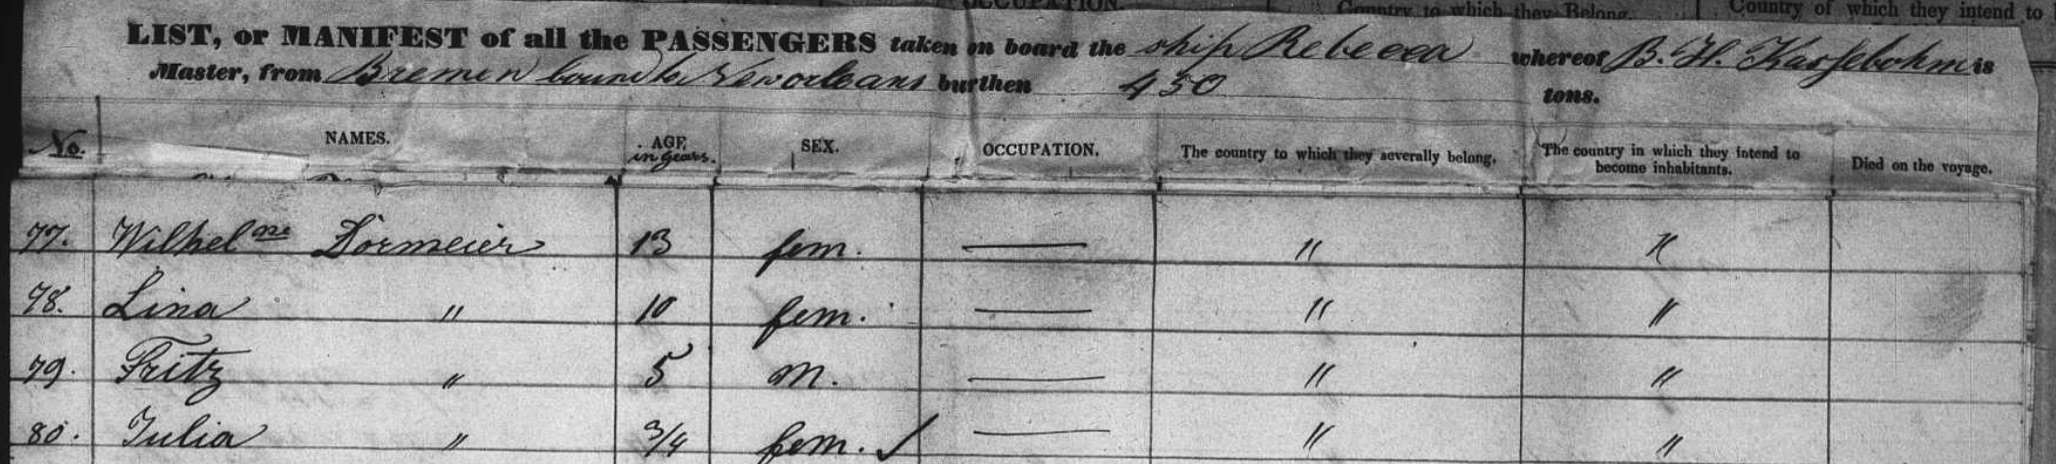 OCCUPATION. Country to which they Belong. Country of which they intend to
LIST, or MANIFEST of all the PASSENGERS taken on board the ship Rebecca whereof B. H. Kassebohm is
Master, from Bremen bound to Neworleans burthen 450 tons.
No. NAMES. AGE in years. SEX. OCCUPATION. The country to which they severally belong. The country in which they intend to become inhabitants. Died on the voyage.
77. Wilhelmne Dormeier 13 fem. — " "
78. Lina " 10 fem. — " "
79. Fritz " 5 m. — " "
80. Julia " 3/4 fem. ✓ — " "